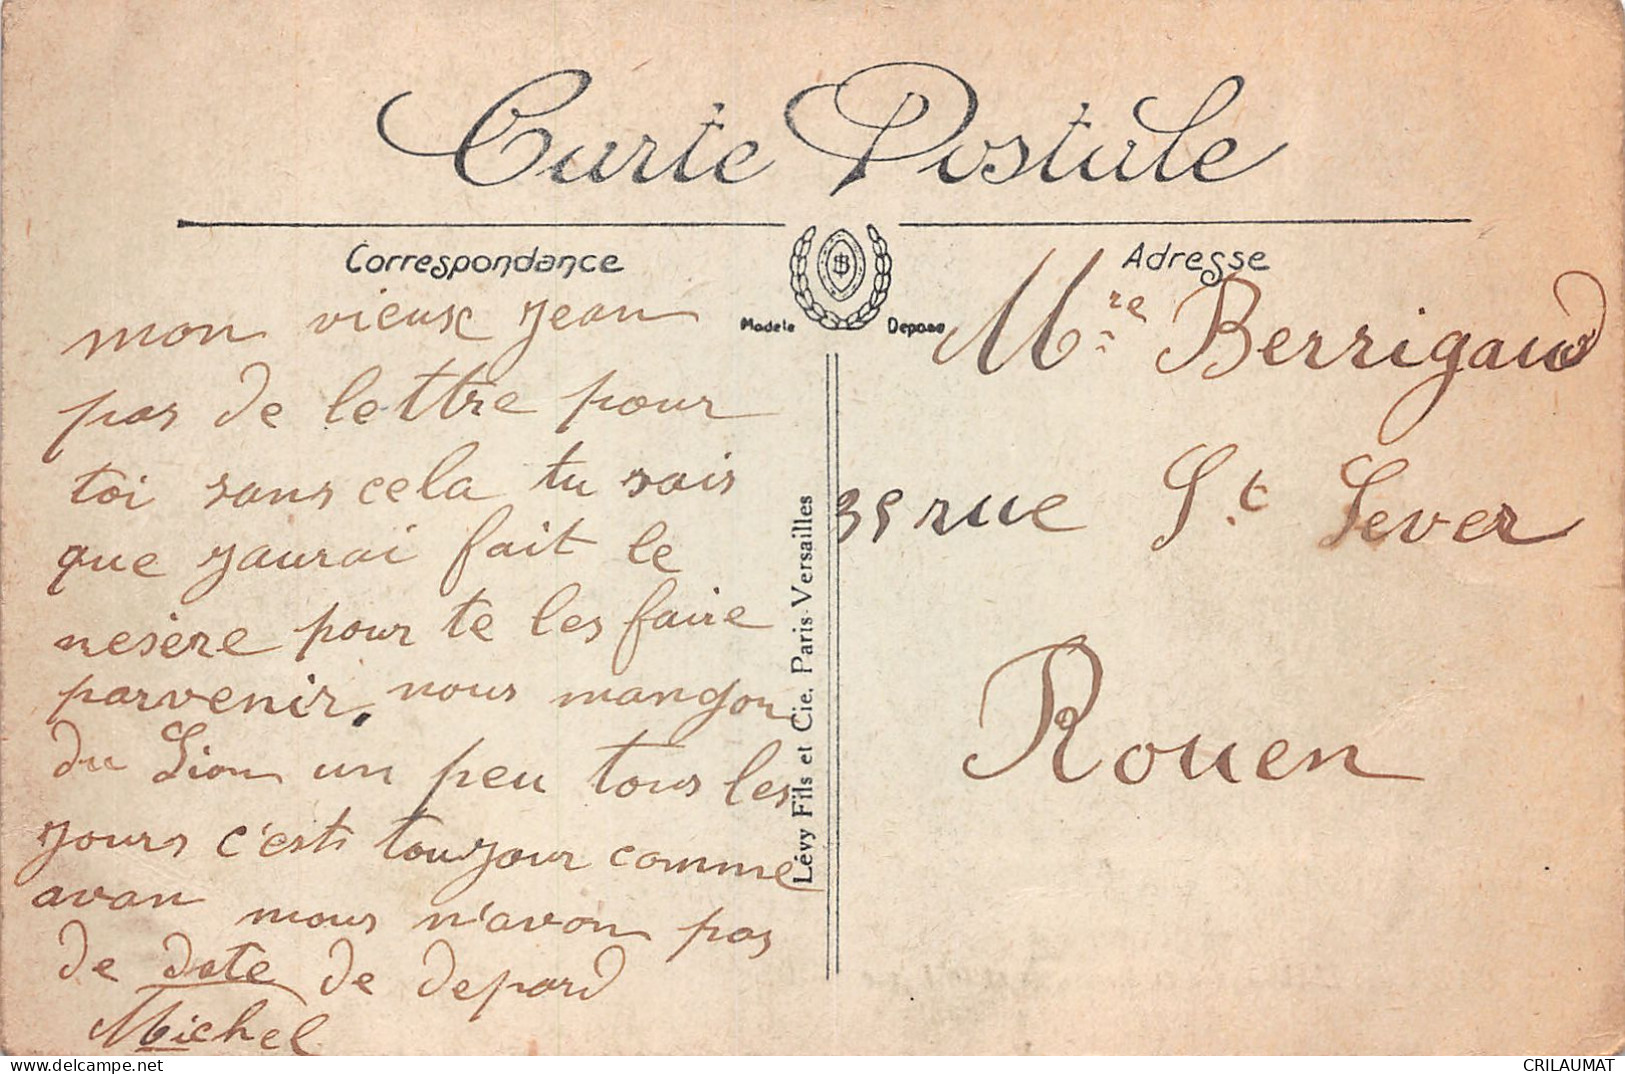 Carte Postale
Correspondance
Adresse
Modele Depose
mon vieux jean
pas de lettre pour
toi sans cela tu sais
que jaurai fait le
nesère pour te les faire
parvenir, nous mangon
du Lion un peu tous les
jours c'est toujour comme
avan nous n'avon pas
de date de depard
Michel
Lévy Fils et Cie, Paris-Versailles
Mre Berrigaud
35 rue St Sever
Rouen
CRILAUMAT